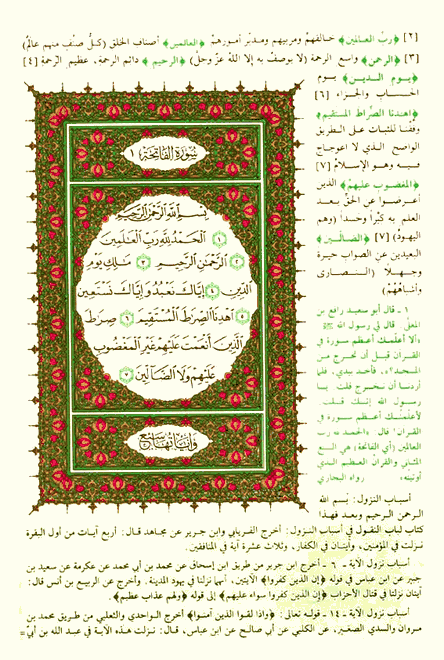 [٢] ﴿ربّ العالمين﴾ خالقهم ومربيهم ومدبّر أمورهم ﴿العالمين﴾ أصناف الخلق (كلّ صنف منهم عالم)
[٣] ﴿الرحمن﴾ واسع الرحمة (لا يوصف به إلا الله عزّ وجلّ) ﴿الرحيم﴾ دائم الرحمة، عظيم الرّحمة [٤]
﴿يوم الدين﴾ يوم
الحساب والجزاء [٦]
﴿اهدنا الصّراط المستقيم﴾
وفقنا للثبات على الطريق
الواضح الذي لا اعوجاج
فيه وهو الإسلام [٧]
﴿المغضوب عليهم﴾ الذين
أعرضوا عن الحقّ بعد
العلم به كبراً وحسداً (وهم
اليهود) [٧] ﴿الضالّين﴾
البعيدين عن الصواب حيرة
وجهلاً (النصارى
وأتباعهم)
سورة الفاتحة ١
بسم الله الرحمن الرحيم
١ الحمد لله رب العالمين
٢ الرحمن الرحيم ٣ مالك يوم
الدين ٤ إياك نعبد وإياك نستعين
٥ اهدنا الصراط المستقيم ٦ صراط
الذين أنعمت عليهم غير المغضوب
عليهم ولا الضالين ٧
وآياتها سبع
١ - قال أبو سعيد رافع بن
المعلى: قال لي رسول الله ﷺ
«ألا أعلمك أعظم سورة في
القرآن قبل أن تخرج من
المسجد»، فأخذ بيدي، فلما
أردنا أن نخرج قلت يا
رسول الله إنك قلت
لأعلمنك أعظم سورة في
القرآن؟ قال: «الحمد لله رب
العالمين (أي الفاتحة) هي السبع
المثاني والقرآن العظيم الذي
أوتيته» رواه البخاري
أسباب النزول: بسم الله
الرحمن الرحيم وبعد فهذا
كتاب لباب النقول في أسباب النزول: أخرج الفريابي وابن جرير عن مجاهد قال: أربع آيات من أول البقرة
نزلت في المؤمنين، وآيتان في الكفار، وثلاث عشرة آية في المنافقين.
أسباب نزول الآية - ٦ - أخرج ابن جرير من طريق ابن إسحاق عن محمد بن أبي محمد عن عكرمة عن سعيد بن
جبير عن ابن عباس في قوله ﴿إن الذين كفروا﴾ الآيتين، أنهما نزلتا في يهود المدينة. وأخرج عن الربيع بن أنس قال:
آيتان نزلتا في قتال الأحزاب ﴿إن الذين كفروا سواء عليهم﴾ إلى قوله ﴿ولهم عذاب عظيم﴾.
أسباب نزول الآية - ١٤ - قوله تعالى: ﴿وإذا لقوا الذين آمنوا﴾ أخرج الواحدي والثعلبي من طريق محمد بن
مروان والسدي الصغير، عن الكلبي عن أبي صالح عن ابن عباس، قال: نزلت هذه الآية في عبد الله بن أبيّ =